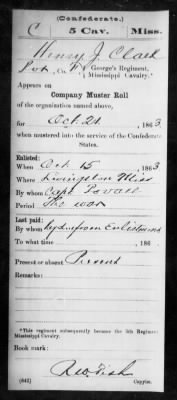 (Confederate.)
C 5 Cav. Miss.
Henry J. Clark
Pvt., Co. F, George's Regiment,
Mississippi Cavalry.*
Appears on
Company Muster Roll
of the organization named above,
for Oct. 21, 1863
when mustered into the service of the Confederate
States.
Enlisted:
When Oct 15, 1863
Where Livingston Miss
By whom Capt.
Period The war
Last paid:
By whom from Enlistment
To what time , 186 .
Present or absent Present
Remarks:
*This regiment subsequently became the 5th Regiment
Mississippi Cavalry.
Book mark:
R.W. Fish
(642) Copyist.